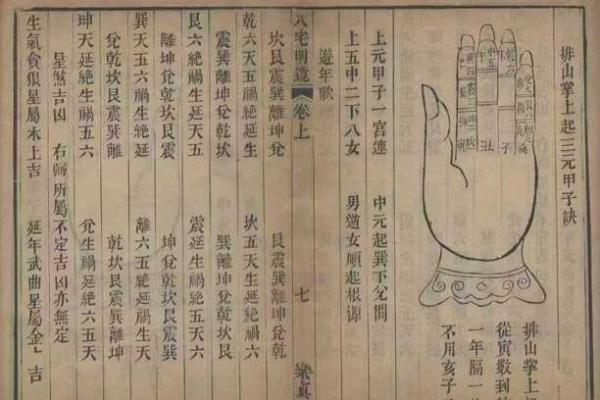 排山掌上起三元甲子訣
排山掌上起
從寅數到
一年隔一
不用亥子
上元甲子一宮連 中元起巽下兌間
上五中二下八女 男逆女順起根源
遊年歌
八宅明鏡 卷上 七
坎艮震巽離坤兌 艮震巽離坤兌乾
乾六天五禍絕延生 坎五天生延絕禍六
震巽離坤兌乾坎 巽離坤兌乾坎艮
艮六絕禍生延天五 震延生禍絕五天六
離坤兌乾坎艮震 坤兌乾坎艮震巽
巽天五六禍生絕延 離六五絕延禍生天
兌乾坎艮震巽離 乾坎艮震巽離坤
坤天延絕生禍五六 兌生禍延絕六五天
星煞吉凶 右 所屬不定吉凶亦無定
生氣貪狼星屬木上吉 延年武曲星屬金 吉